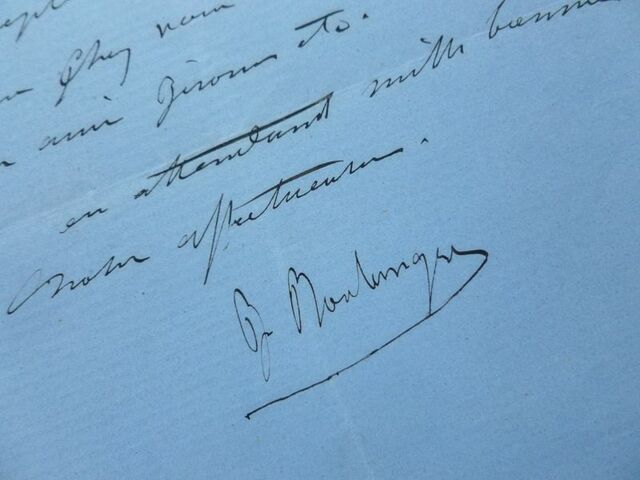 chez nous
ami Gérome etc.
en attendant mille bonnes
Votre affectueux.
G. Boulanger